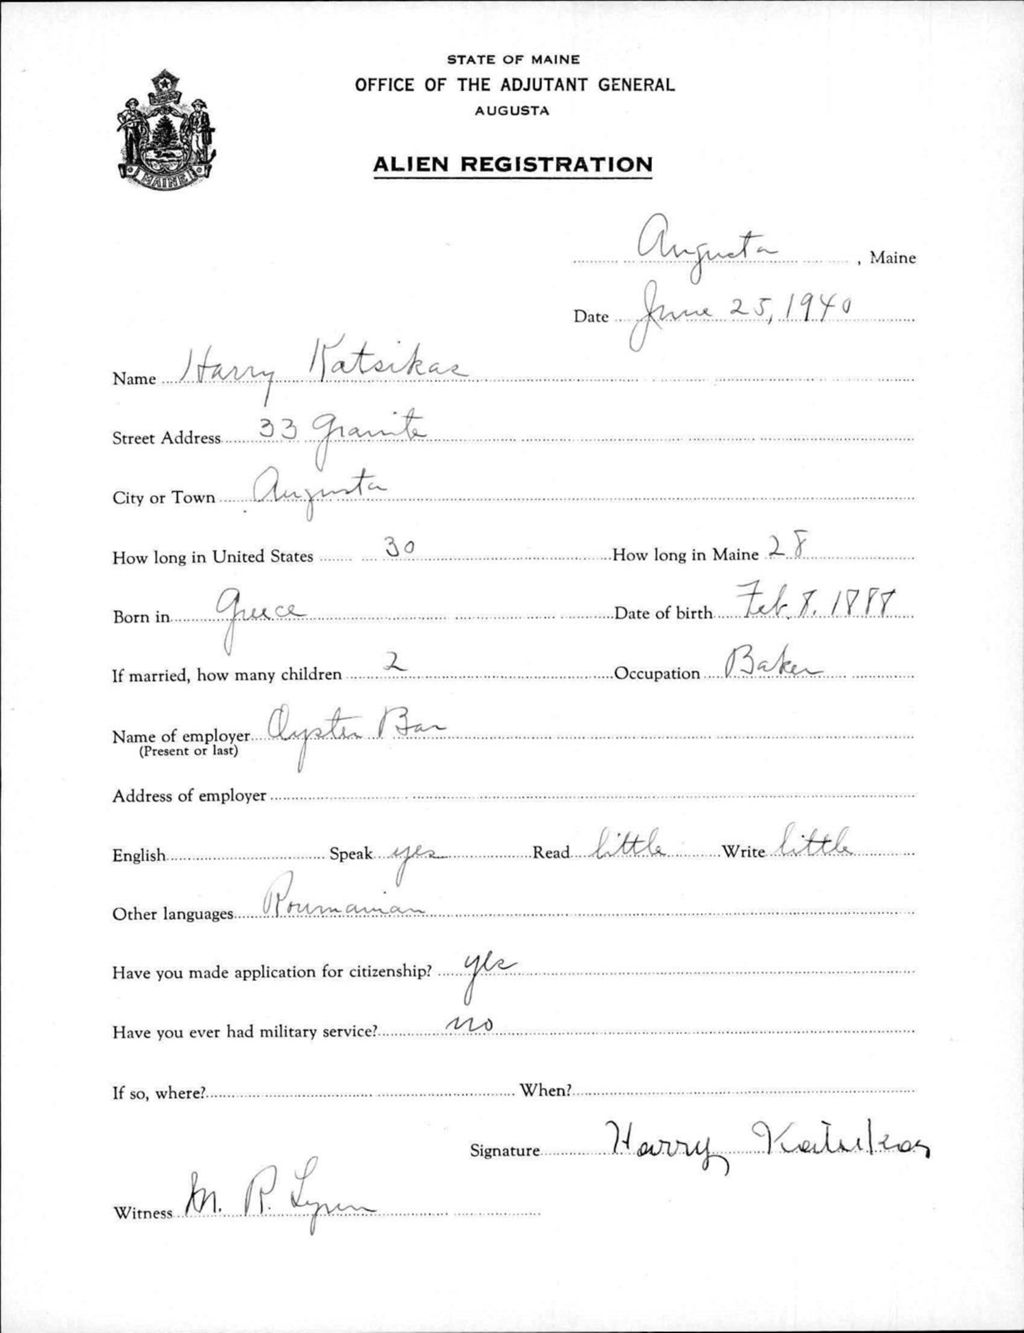 STATE OF MAINE
OFFICE OF THE ADJUTANT GENERAL
AUGUSTA
MAINE
ALIEN REGISTRATION
Augusta, Maine
Date June 25, 1940
Name Harry Katsikas
Street Address 33 Granite
City or Town Augusta
How long in United States 30 How long in Maine 28
Born in Greece Date of birth Feb. 8, 1888
If married, how many children 2 Occupation Baker
Name of employer Oyster Bar
(Present or last)
Address of employer
English Speak yes Read little Write little
Other languages Roumanian
Have you made application for citizenship? yes
Have you ever had military service? no
If so, where? When?
Signature Harry Katsikas
Witness M. R. Lynn